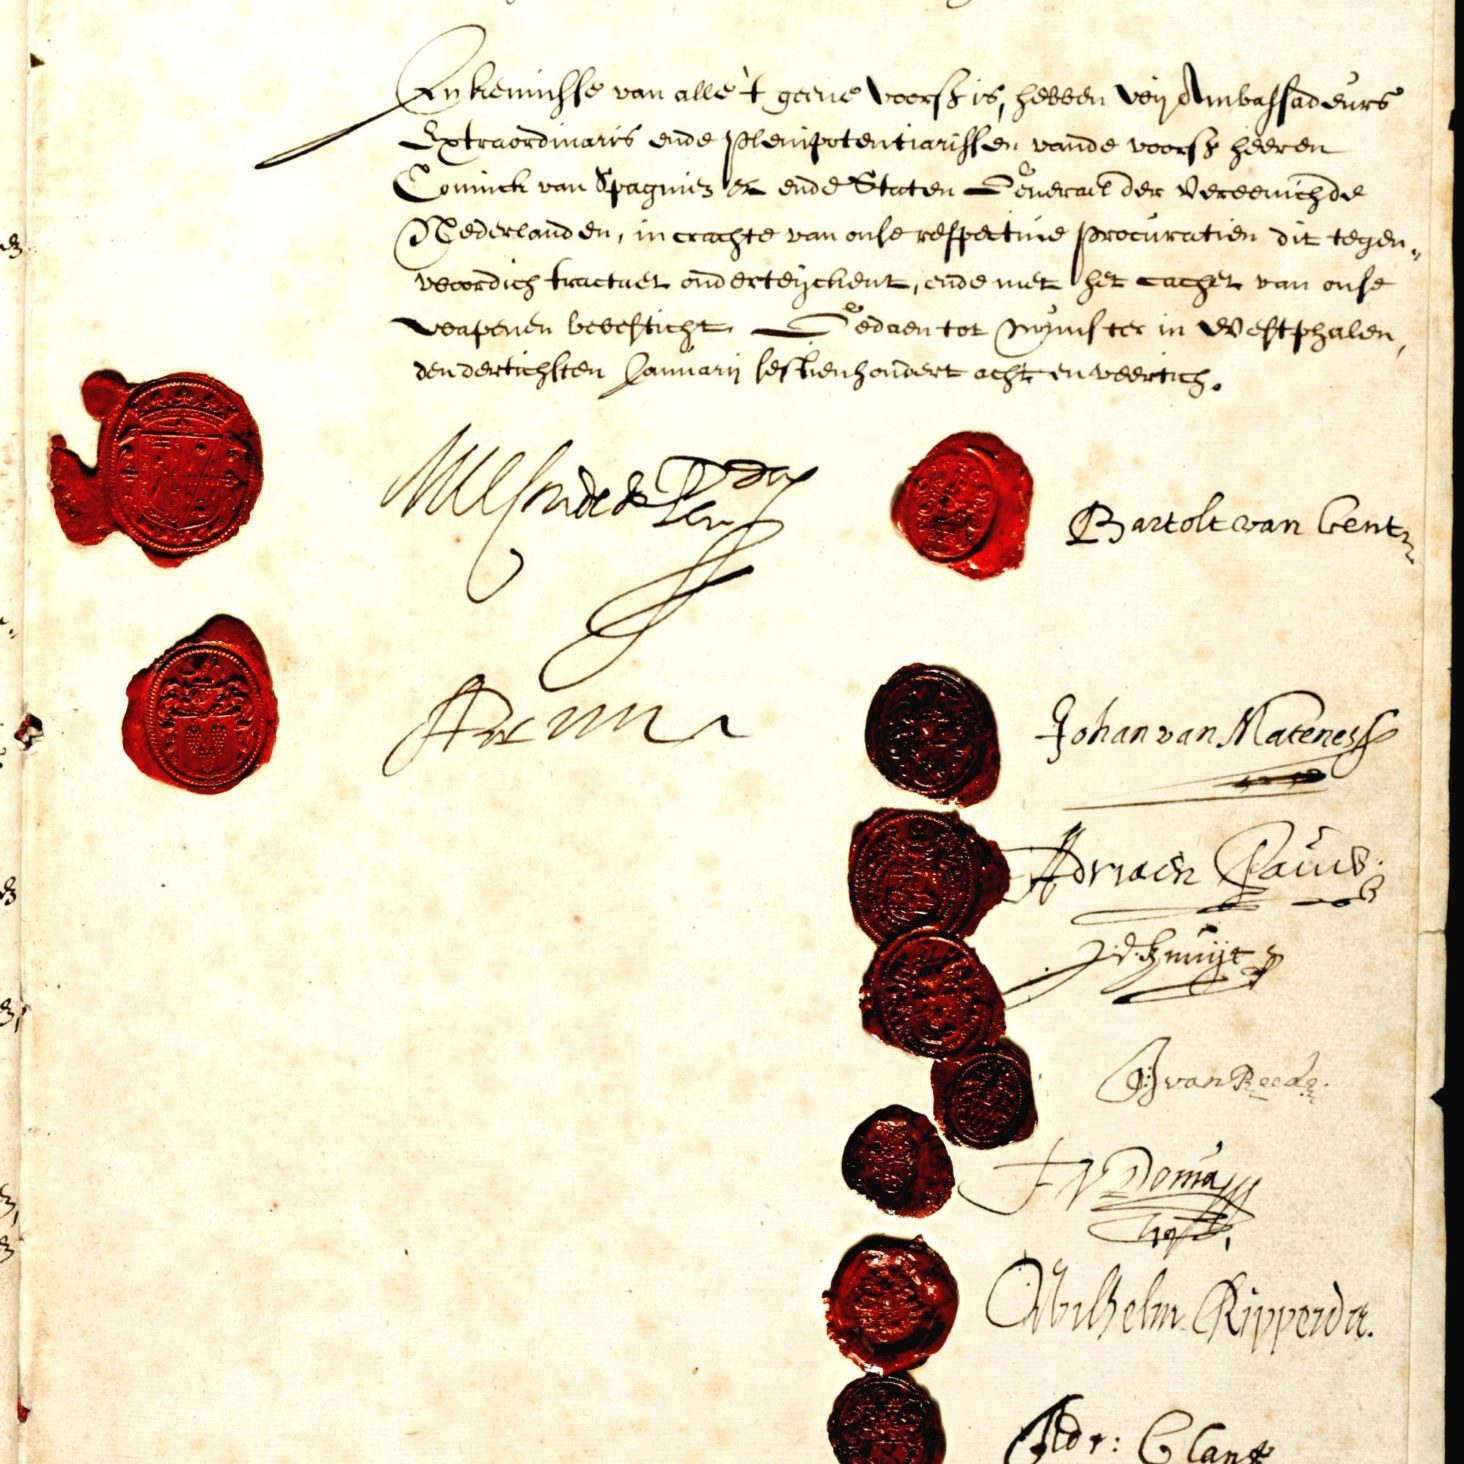 In kennisse van alle 't geene voorsz is, hebben wij Ambassadeurs
Extraordinaris ende Plenipotentiarissen vande voorsz heeren
Coninck van Spagnien ende Staten Generael der Vereenichde
Nederlanden, in crachte van onse respective procuratien dit tegen-
woordich tractaet onderteijckent, ende met het cachet van onse
wapenen bevesticht. Gedaen tot Munster in Westphalen,
den dertichsten Januarij sesthienhondert acht en veertich.
Bartolt van Gent
Johan van Mateness
Adriaen Pauw
J. d. Knuijt
G. van Reede
F V Donia
Wilhelm Ripperda.
Adr: Clant